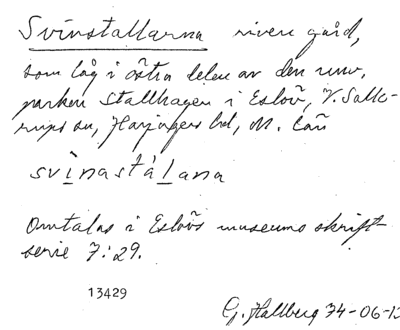 Svinstallarna riven gård,
som låg i östra delen av den nuv.
parken Stallhagen i Eslöv, V. Sallerups sn, Harjagers hd, M. län
svìnastá̀lana
Omtalas i Eslövs museums skriftserie 7:29.
13429
G. Hallberg 74-06-12